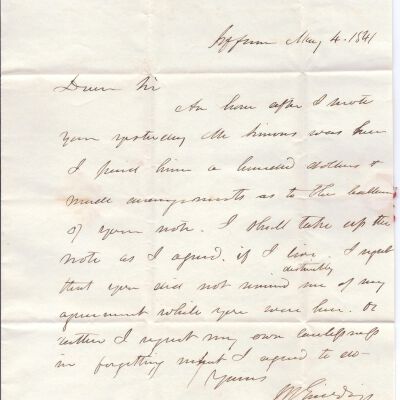 May 4. 1841
Dear Sir
An hour after I wrote
you yesterday Mr Simons was here
I paid him a hundred dollars &
made arrangements as to the ballance
of your note. I shall take up the
note as I agreed. if I live. I regret
distinctly
that you did not remind me of my
agreement while you were here. Or
rather I regret my own carelessness
in forgetting what I agreed to do-
Yours